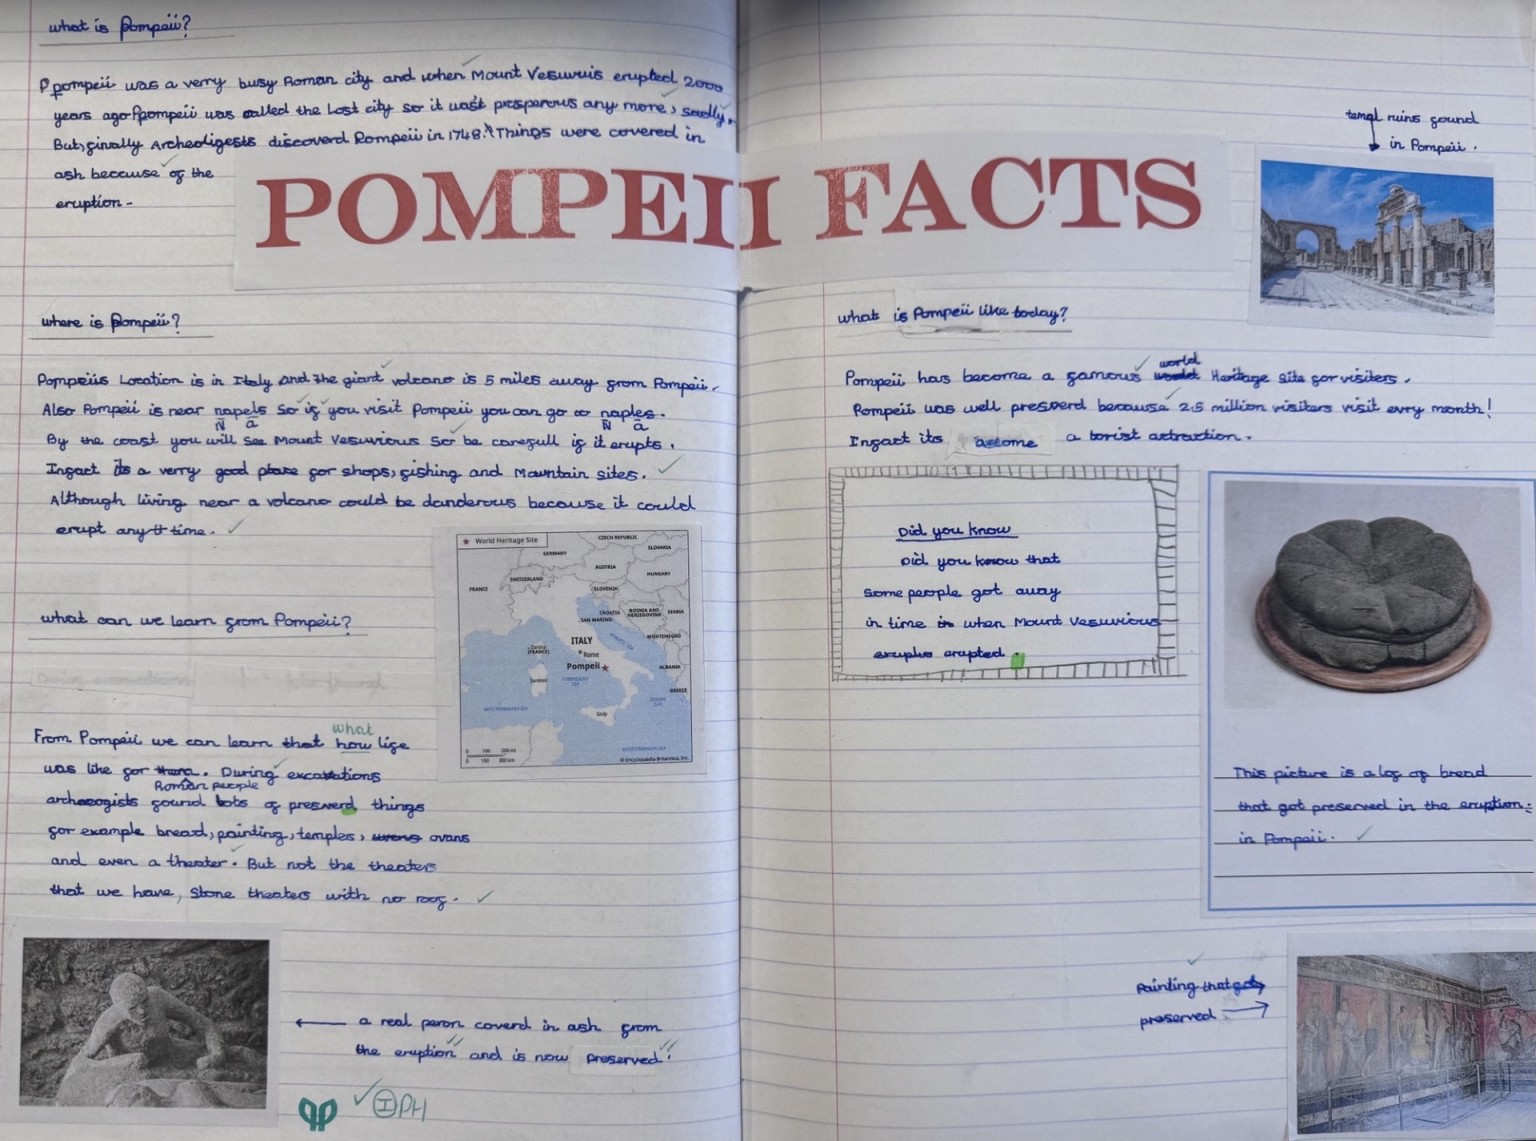 what is Pompeii?
Ppompeii was a verry busy Roman city and when Mount Vesuvuis erupted 2000
years ago Ppompeii was called the Lost city so it was't prosperous any more, sadly.
But, finally Archeoligests discoverd Pompeii in 1748. Things were covered in
ash because of the
eruption.
POMPEII FACTS
where is Pompeii?
Pompeiis Location is in Italy and the giant volcano is 5 miles away from Pompeii.
Also Pompeii is near napels So if you visit Pompeii you can go to naples.
N a N a
By the coast you will see Mount Vesuvious So be carefull if it erupts.
Infact its a verry good place for shops, fishing and Mountain sites.
Although living near a volcano could be danderous because it could
erupt any time.
World Heritage Site
CZECH REPUBLIC
GERMANY
SLOVAKIA
AUSTRIA
HUNGARY
SWITZERLAND
FRANCE
SLOVENIA
CROATIA
BOSNIA AND HERZEGOVINA
SERBIA
SAN MARINO
ITALY
MONTENEGRO
Corsica (FRANCE)
Rome
Pompeii
ALBANIA
Sardinia
TYRRHENIAN SEA
GREECE
MEDITERRANEAN SEA
IONIAN SEA
Sicily
MEDITERRANEAN SEA
0 100 200 mi
0 150 300 km
© Encyclopædia Britannica, Inc.
what can we learn from Pompeii?
what
From Pompeii we can learn that how life
was like for them. During excavations
Roman people
archeogists found lots of preserverd things
for example bread, painting, temples, ovans
and even a theater. But not the theaters
that we have, Stone theaters with no roof.
a real peron coverd in ash from
the eruption and is now preserved.
I PH
templ ruins found
in Pompeii.
what is Pompeii like today?
world
Pompeii has become a famous world Heritage Site for visiters.
Pompeii was well preserverd because 2.5 million visiters visit evry month!
Infact its a torist attraction.
Did you know
Did you know that
some people got away
in time in when Mount Vesuvious
erupted.
This picture is a lof of bread
that got preserved in the eruption.
in Pompeii.
Painting that got
preserved